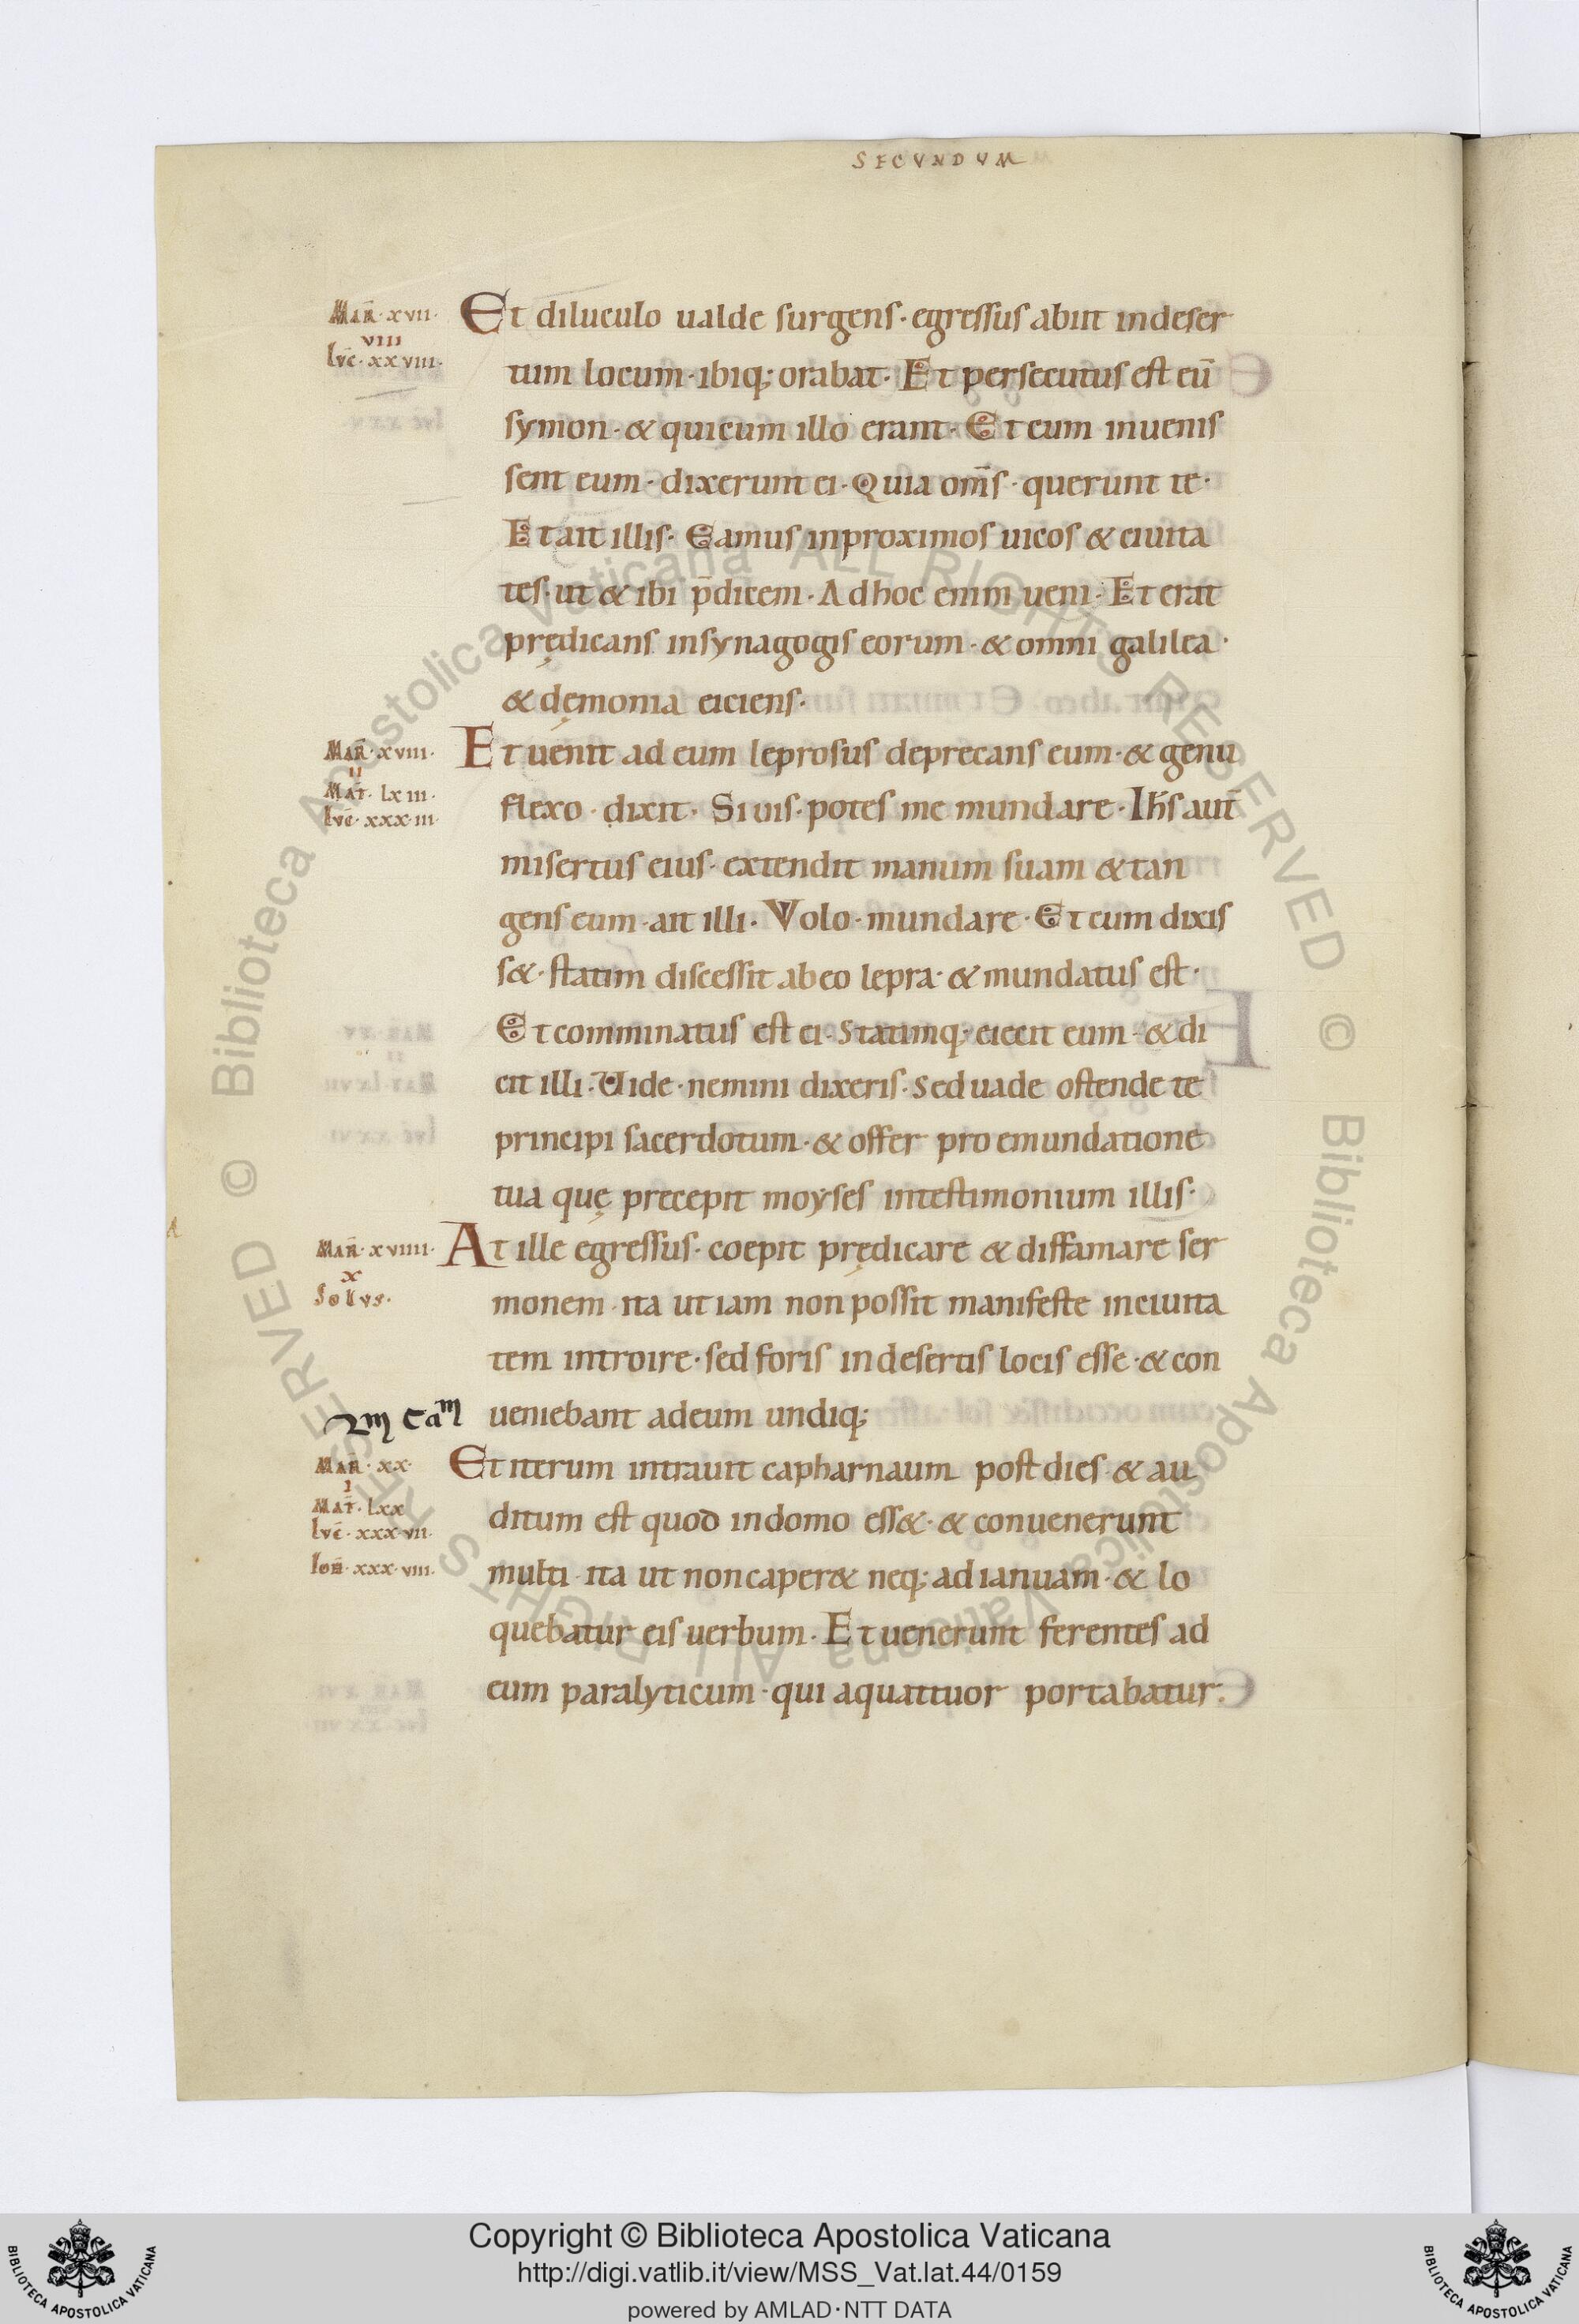 SECVNDVM
MAR̄·xvii·
viii
lvc̄·xxviii·
Et diluculo ualde surgens·egressus abiit indeser
tum locum·ibiq;orabat·Et persecutus est eū
symon·& quicum illo erant·Et cum inuenis
sent eum·dixerunt ei·Quia om̄s·querunt te·
Et ait illis·Eamus inproximos uicos & ciuita
tes·ut & ibi p̄dicem·Adhoc enim ueni·Et erat
prędicans insynagogis eorum·& omni galilea·
& dęmonia eiciens·
MAR̄·xviii·
ii
MAT̄·lxiii·
lvc̄·xxxiii·
Et uenit ad eum leprosus deprecans eum·& genu
flexo·dixit·Si uis·potes me mundare·Ih̄s aut̄
misertus eius·extendit manum suam & tan
gens eum·ait illi·Volo·mundare·Et cum dixis
s&·statim discessit abeo lepra·& mundatus est·
Et comminatus est ei·Statimq;eiecit eum·& di
cit illi·Uide·nemini dixeris·sed uade ostende te
principi sacerdotum·& offer pro emundatione
tua quę precepit moyses intestimonium illis·
MAR̄·xviiii·
x
Solvs·
At ille egressus·coepit prędicare & diffamare ser
monem·ita ut iam non possit manifeste inciuita
tem introire·sed foris indesertis locis esse·& con
ueniebant adeum undiq;
MAR̄·xx·
i
MAT̄·lxx
lvc̄·xxxvii·
Ioh̄·xxxviii·
Et iterum intrauit capharnaum post dies·& au
ditum est quod indomo ess&·& conuenerunt
multi·ita ut noncaper& neq;adianuam·& lo
quebatur eis uerbum·Et uenerunt ferentes ad
eum paralyticum·qui aquattuor portabatur·
© Biblioteca Apostolica Vaticana ALL RIGHTS RESERVED
© Biblioteca Apostolica Vaticana ALL RIGHTS RESERVED
Copyright © Biblioteca Apostolica Vaticana
http://digi.vatlib.it/view/MSS_Vat.lat.44/0159
powered by AMLAD·NTT DATA
BIBLIOTECA APOSTOLICA VATICANA
BIBLIOTECA APOSTOLICA VATICANA